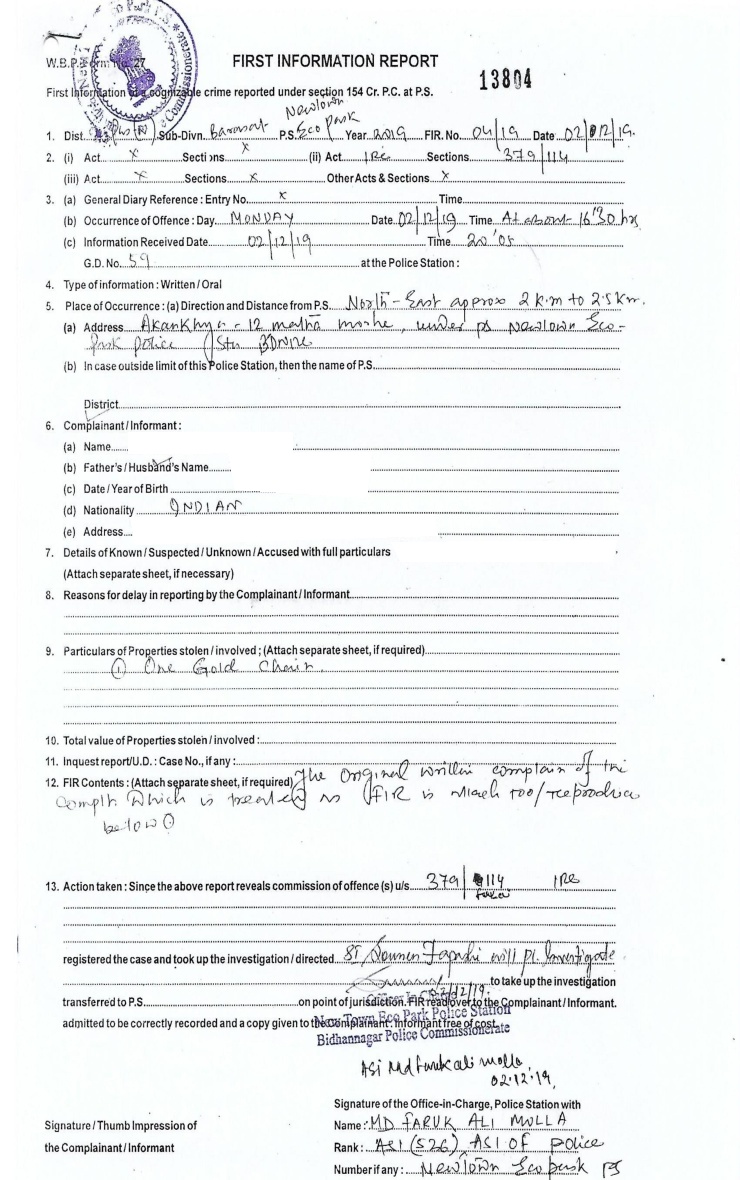 W.B.P. Form No. 27
FIRST INFORMATION REPORT
13804
First Information of a cognizable crime reported under section 154 Cr. P.C. at P.S.
Newtown
1. Dist. Sub-Divn. Barasat P.S. Eco park Year 2019 FIR. No. 04/19 Date 02/12/19.
2. (i) Act x Sections x (ii) Act IPC Sections 379/114
(iii) Act x Sections x Other Acts & Sections x
3. (a) General Diary Reference : Entry No. x Time
(b) Occurrence of Offence : Day. MONDAY Date 02/12/19 Time At about 16'30 hrs
(c) Information Received Date 02/12/19 Time 20'05
G.D. No. 59 at the Police Station :
4. Type of information : Written / Oral
5. Place of Occurrence : (a) Direction and Distance from P.S. North-East approx 2 k.m to 2.5 km.
(a) Address Akankhya - 12 matha more, under ps Newtown Eco-
park police Stn
(b) In case outside limit of this Police Station, then the name of P.S.
District
6. Complainant / Informant :
(a) Name
(b) Father's / Husband's Name
(c) Date / Year of Birth
(d) Nationality INDIAN
(e) Address
7. Details of Known / Suspected / Unknown / Accused with full particulars
(Attach separate sheet, if necessary)
8. Reasons for delay in reporting by the Complainant / Informant
9. Particulars of Properties stolen / involved ; (Attach separate sheet, if required)
① One Gold Chain
10. Total value of Properties stolen / involved :
11. Inquest report / U.D. : Case No., if any :
12. FIR Contents : (Attach separate sheet, if required) The original written complain of the
complt which is treated as FIR is
below
13. Action taken : Since the above report reveals commission of offence (s) u/s. 379/114 IPC
registered the case and took up the investigation / directed SI Soumen will pl. Investigate
to take up the investigation
02/12/19.
transferred to P.S. on point of jurisdiction. FIR read over to the Complainant / Informant.
admitted to be correctly recorded and a copy given to the complainant. Informant free of cost.
New Town Eco Park Police Station
Bidhannagar Police Commissionerate
ASI Md Faruk ali molla
02.12.19,
Signature of the Office-in-Charge, Police Station with
Signature / Thumb Impression of
the Complainant / Informant
Name : MD FARUK ALI MOLLA
Rank : ASI (526), ASI OF police
Number if any : Newtown Eco park PS